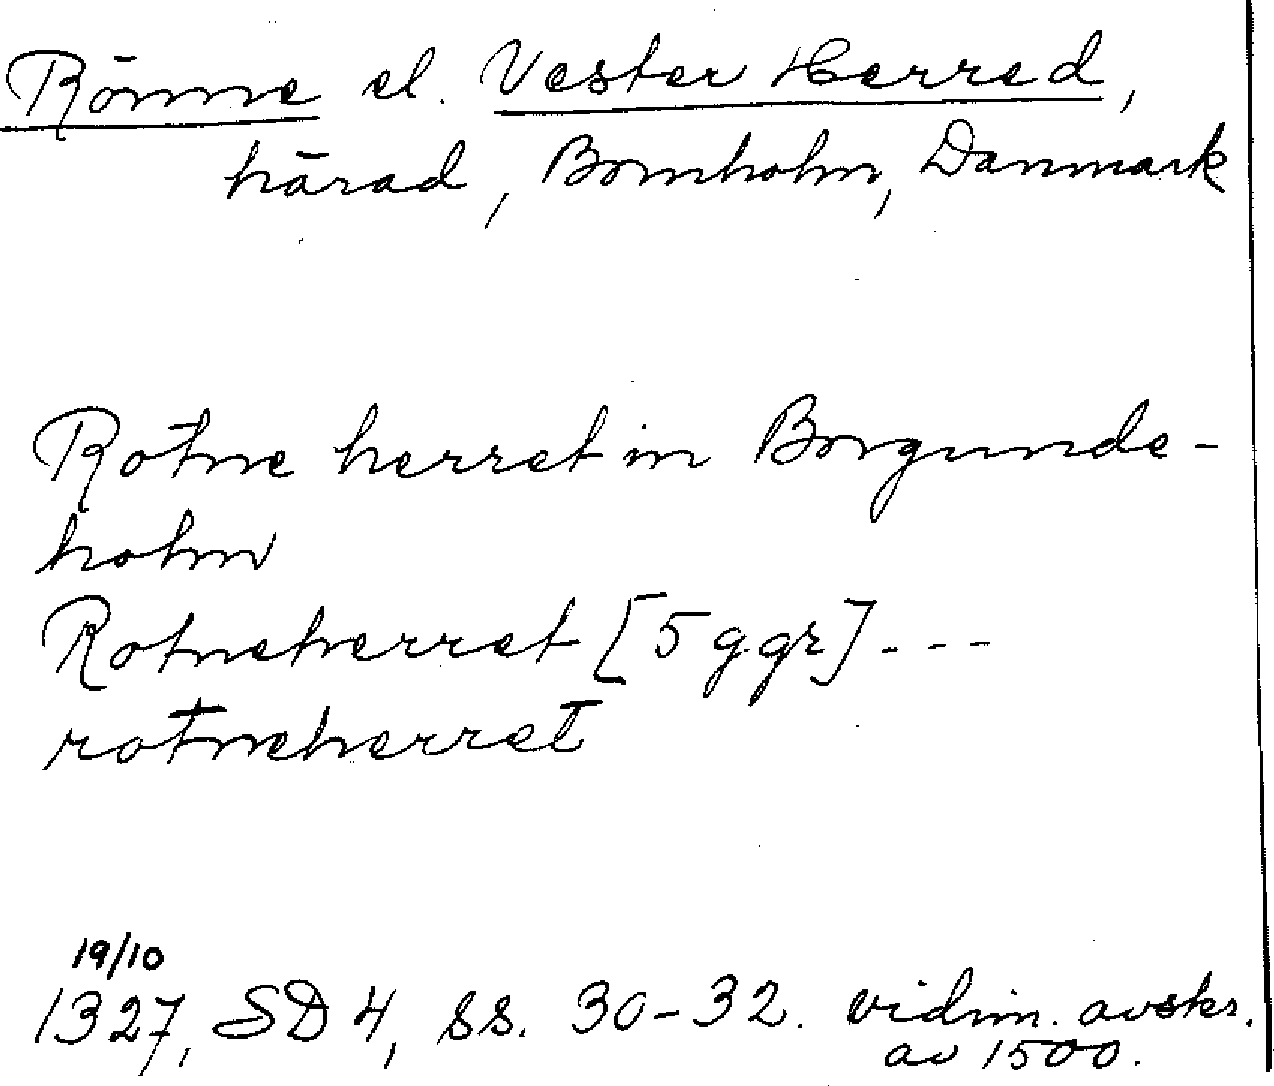 Rönne el. Vester Herred,
härad, Bornholm, Danmark
Rotne herret in Borgunde-
holm
Rotneherret [5 ggr] - - -
rotneherret
19/10
1327, SD 4, ss. 30-32. vidim. avskr.
av 1500.